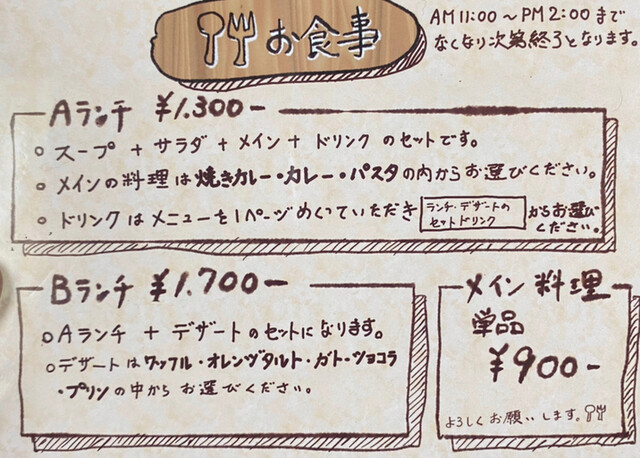 お食事
AM11:00～PM2:00まで
なくなり次第終了となります。
Aランチ ¥1.300-
○スープ + サラダ + メイン + ドリンク のセットです。
○メインの料理は焼きカレー・カレー・パスタの内からお選びください。
○ドリンクはメニューを1ページめくっていただき
ランチ・デザートの
セットドリンク
からお選び
ください。
Bランチ ¥1.700-
○Aランチ + デザートのセットになります。
○デザートはワッフル・オレンヂタルト・ガトーショコラ
・プリンの中からお選びください。
メイン料理
単品
¥900-
よろしくお願いします。